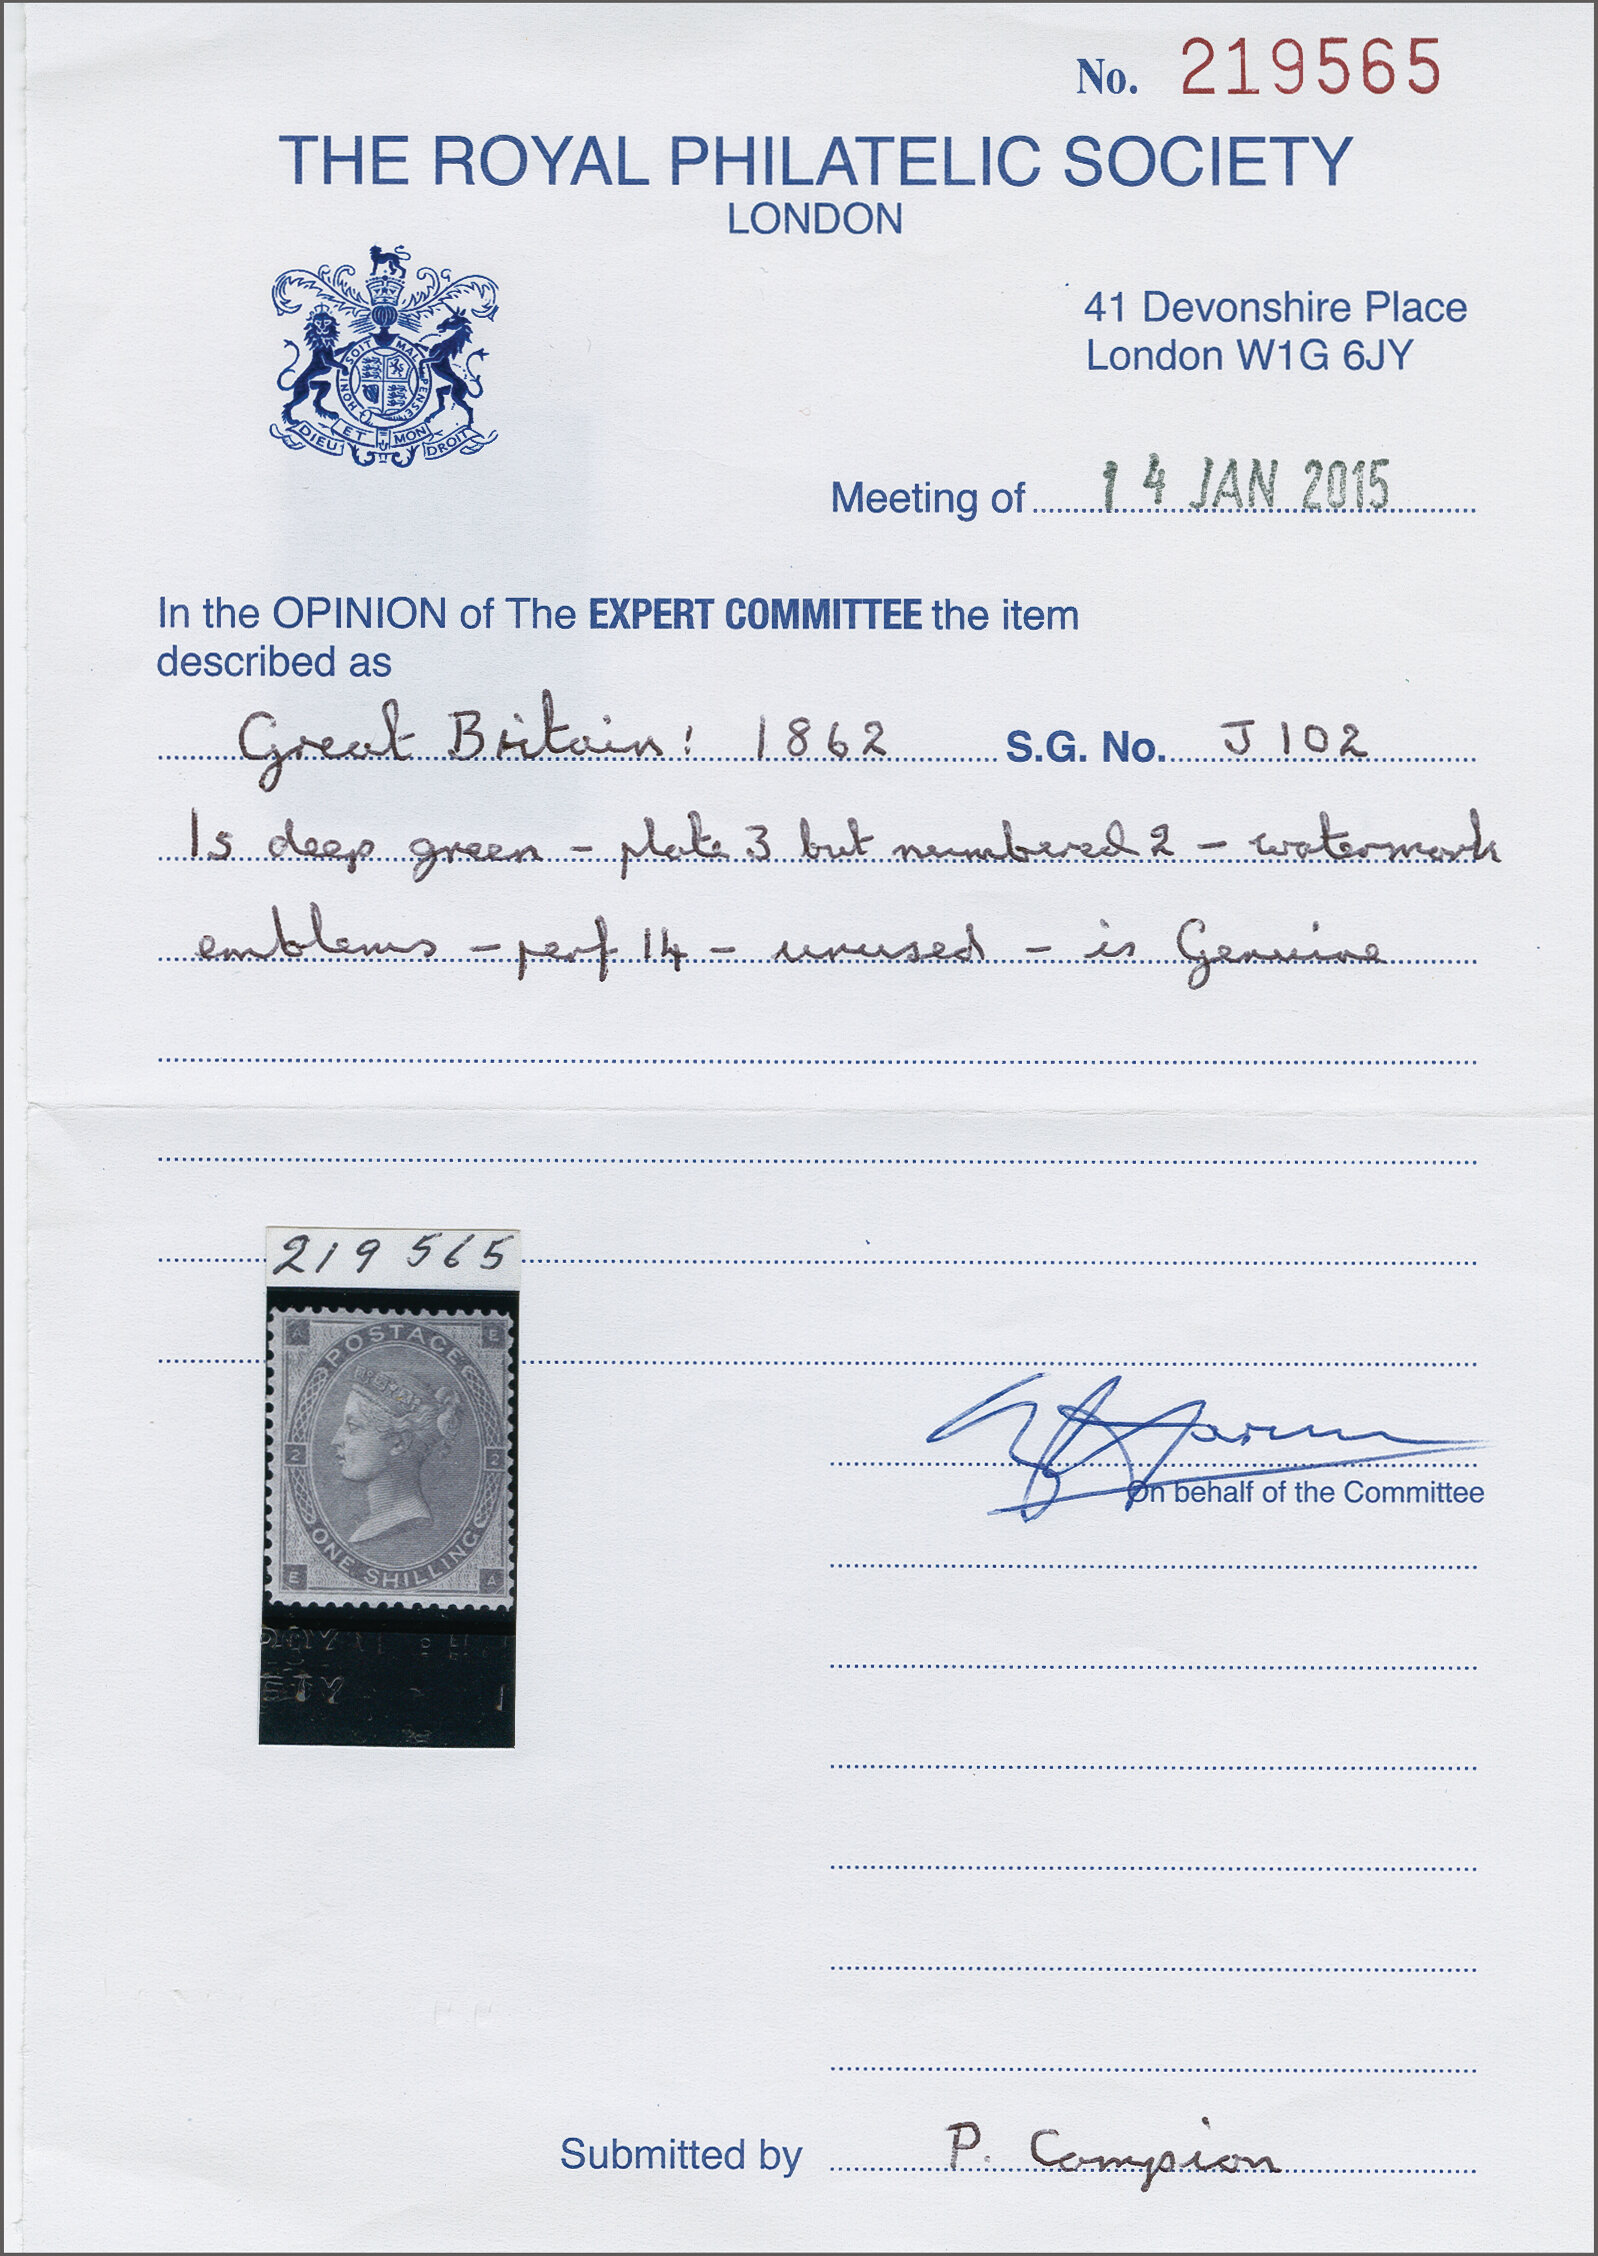 No. 219565
THE ROYAL PHILATELIC SOCIETY
LONDON
HONI SOIT MAL PENSE
DIEU ET MON DROIT
41 Devonshire Place
London W1G 6JY
Meeting of 14 JAN 2015
In the OPINION of The EXPERT COMMITTEE the item
described as
Great Britain: 1862 S.G. No. J102
1s deep green - plate 3 but numbered 2 - watermark
emblems - perf 14 - unused - is Genuine
219565
A E
POSTAGE
2 2
ONE SHILLING
E A
On behalf of the Committee
Submitted by P. Campion